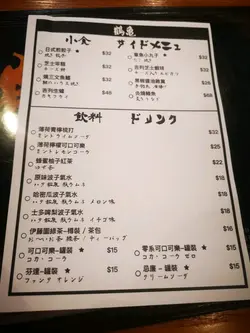 鶴亀
小食 サイドメニュー
日式煎餃子 ★ $32
芝士年糕 $32
燒三文魚頭 $32
吉列生蠔 $32
章魚小丸子 ★ $28
たこ焼き
吉列芝士蝦球
$28
$48
飲料 ドリンク
薄荷青檸梳打 $28
ミントライムソーダ
薄荷檸檬可口可樂 $28
ミントレモンコーラ
蜂蜜柚子紅茶 $22
ゆず茶
原味波子氣水 $18
ハタ鉱泉 瓶ラムネ
哈密瓜波子氣水 $18
ハタ鉱泉 瓶ラムネ メロン味
士多啤梨波子氣水 $18
ハタ鉱泉 瓶ラムネ イチゴ味
伊藤園綠茶-樽裝 / 茶包 $16
おーいお茶 綠茶 / ティーバッグ
可口可樂-罐裝 ★ $15
コカ・コーラ
零系可口可樂-罐裝 ★ $15
コカ・コーラ ゼロ
芬達-罐裝 ★ $15
ファンタ オレンジ
忌廉-罐裝 ★ $15
クリームソーダ